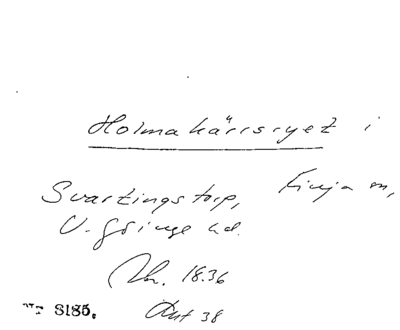 Holmakärrsryet i
Svartingstorp, Finja sn,
V. Göinge hd.
18.36
8185. 38